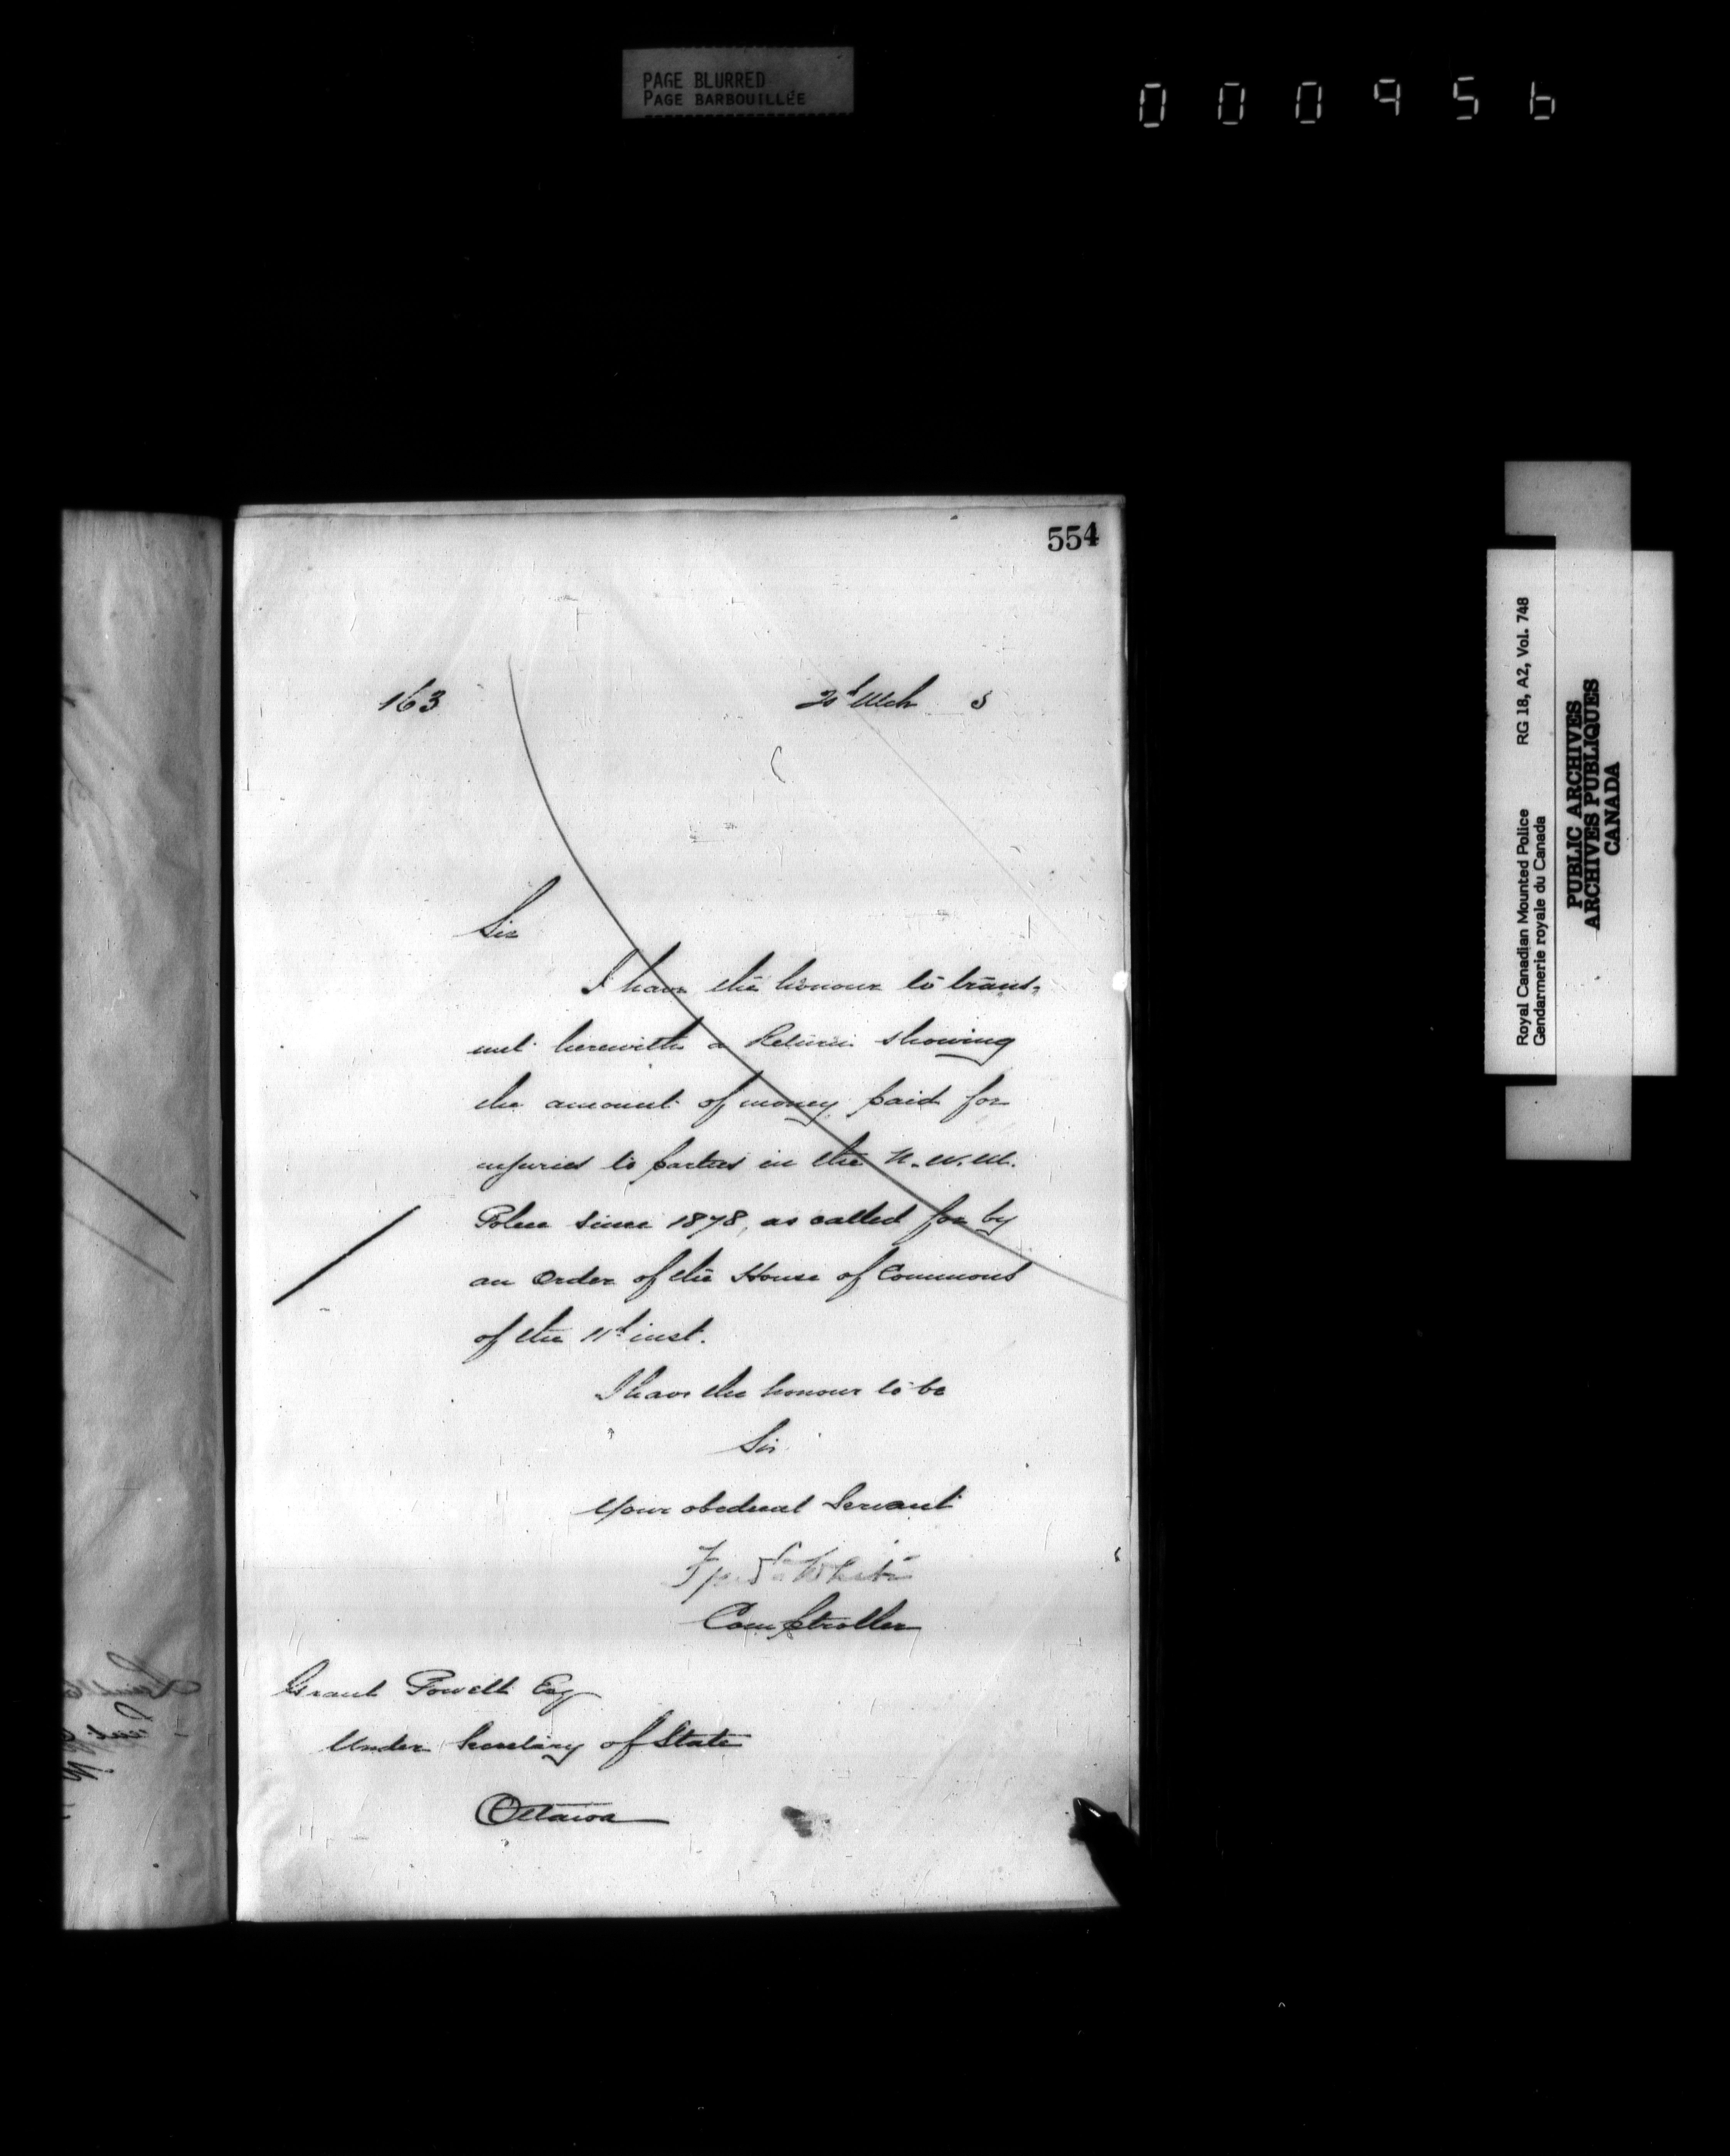 PAGE BLURRED
PAGE BARBOUILLÉE
000956
554
163
Mch 5
Sir
I have the honour to trans-
mit herewith a Return showing
the amount of money paid for
injuries to parties in the N.W.M.
Police since 1878, as called for by
an Order of the House of Commons
of the 11th inst.
I have the honour to be
Sir
Your obedient Servant
Fred White
Comptroller
Grant Powell Esq
Under Secretary of State
Ottawa
Royal Canadian Mounted Police RG 18, A2, Vol. 748
Gendarmerie royale du Canada
PUBLIC ARCHIVES
ARCHIVES PUBLIQUES
CANADA